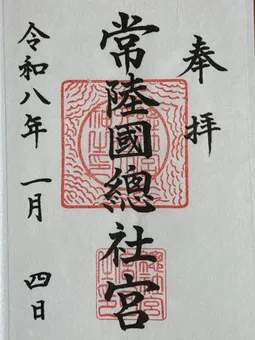 奉拝
常陸國總社宮
令和八年 一月 四日